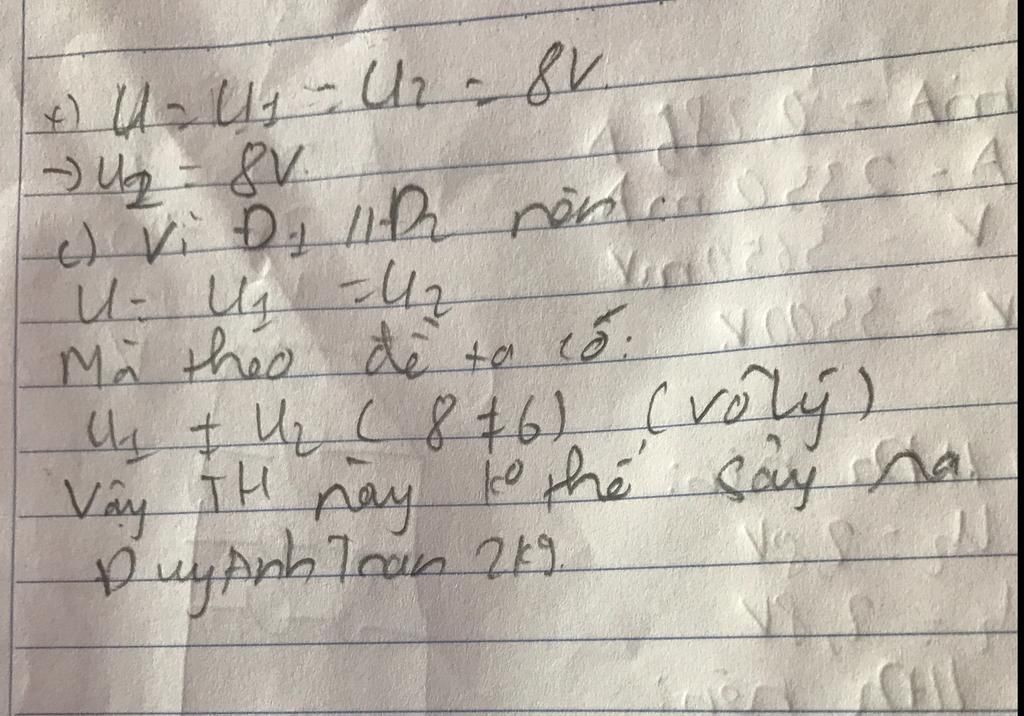 +) U = U1 = U2 = 8V.
→ U2 = 8V.
c) Vì Đ1 // Đ2 nên
U = U1 = U2
Mà theo đề ta có:
U1 ≠ U2 ( 8 ≠ 6) (vô lý)
Vậy TH này ko thể sảy na.
DuyAnhTran 2k9.